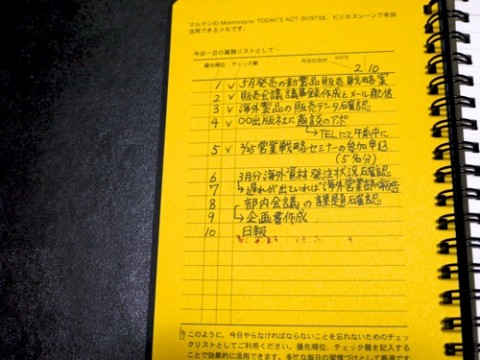 マルマンのMnemosyne TODAY'S ACT (N197)は、ビジネスシーンで有効
活用できるメモです。
今日一日の業務リストとして…
優先順位 チェック欄 今日の日付 DATE
2 10
1 ✓ 5月発売の新製品販売戦略案
2 ✓ 販売会議議事録作成とメール配信
3 ✓ 海外製品の販売データ確認
4 ✓ 〇〇出版社に商談のアポ
→TELにて午前中に
5 ✓ 2/25営業戦略セミナーの参加申込
(5名分)
6 3月分海外資材発注状況確認
7 →遅れが出ていれば海外営業部に
8 部内会議の課題確認
9 →企画書作成
10 日報
このように、今日やらなければならないことを忘れないためのチェッ
クリストとしてご利用ください。優先順位、チェック欄を記入する
ことで効果的に活用できます。